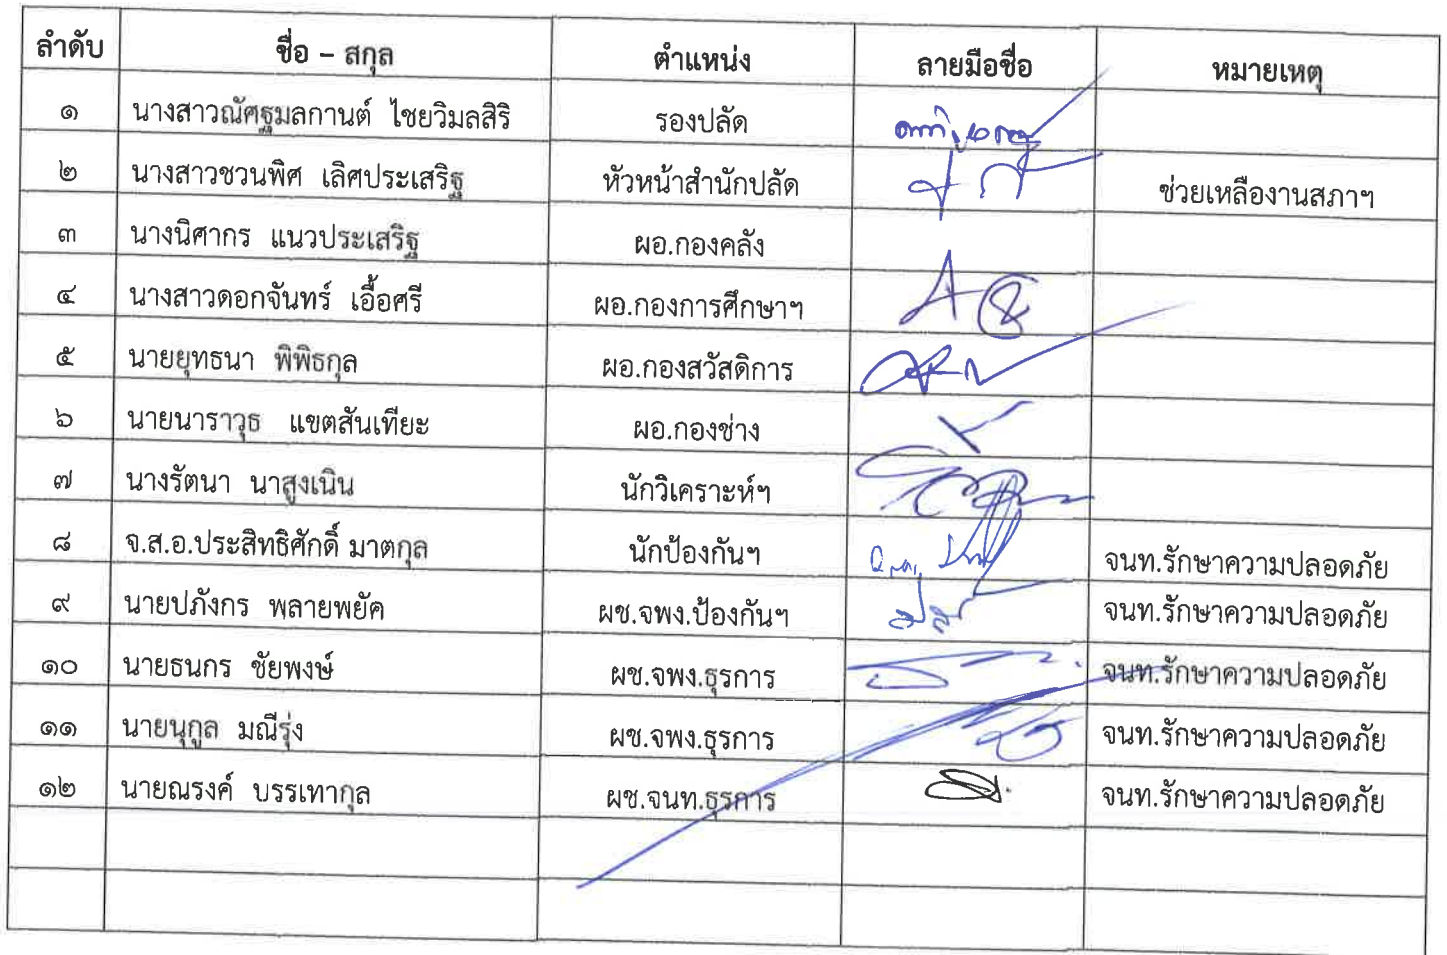 ลำดับ ชื่อ – สกุล ตำแหน่ง ลายมือชื่อ หมายเหตุ
๑ นางสาวณัศฐมลกานต์ ไชยวิมลสิริ รองปลัด
๒ นางสาวชวนพิศ เลิศประเสริฐ หัวหน้าสำนักปลัด ช่วยเหลืองานสภาฯ
๓ นางนิศากร แนวประเสริฐ ผอ.กองคลัง
๔ นางสาวดอกจันทร์ เอื้อศรี ผอ.กองการศึกษาฯ
๕ นายยุทธนา พิพิธกุล ผอ.กองสวัสดิการ
๖ นายนาราวุธ แขตสันเทียะ ผอ.กองช่าง
๗ นางรัตนา นาสูงเนิน นักวิเคราะห์ฯ
๘ จ.ส.อ.ประสิทธิศักดิ์ มาตกุล นักป้องกันฯ จนท.รักษาความปลอดภัย
๙ นายปภังกร พลายพยัค ผช.จพง.ป้องกันฯ จนท.รักษาความปลอดภัย
๑๐ นายธนกร ชัยพงษ์ ผช.จพง.ธุรการ จนท.รักษาความปลอดภัย
๑๑ นายนุกูล มณีรุ่ง ผช.จพง.ธุรการ จนท.รักษาความปลอดภัย
๑๒ นายณรงค์ บรรเทากุล ผช.จนท.ธุรการ จนท.รักษาความปลอดภัย